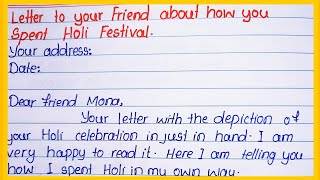 Letter to your Friend about how you
Spent Holi Festival.
Your address:
Date:
Dear friend Mona,
Your letter with the depiction of
your Holi celebration in just in hand. I am
very happy to read it. Here I am telling you
how I spent Holi in my own way.